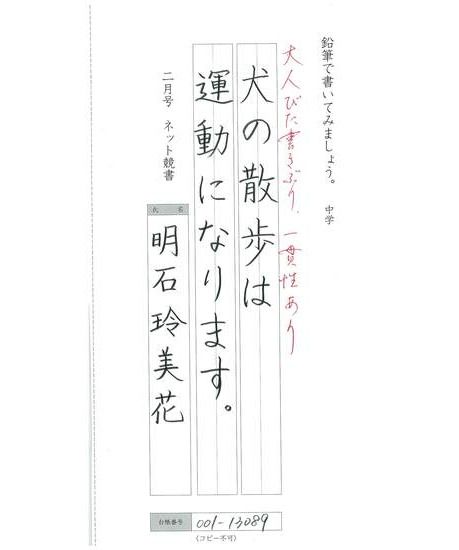 鉛筆で書いてみましょう。 中学
大人びた書きぶり、一貫性あり
犬の散歩は
運動になります。
二月号 ネット競書
氏名
明石玲美花
台帳番号 001-13089
(コピー不可)